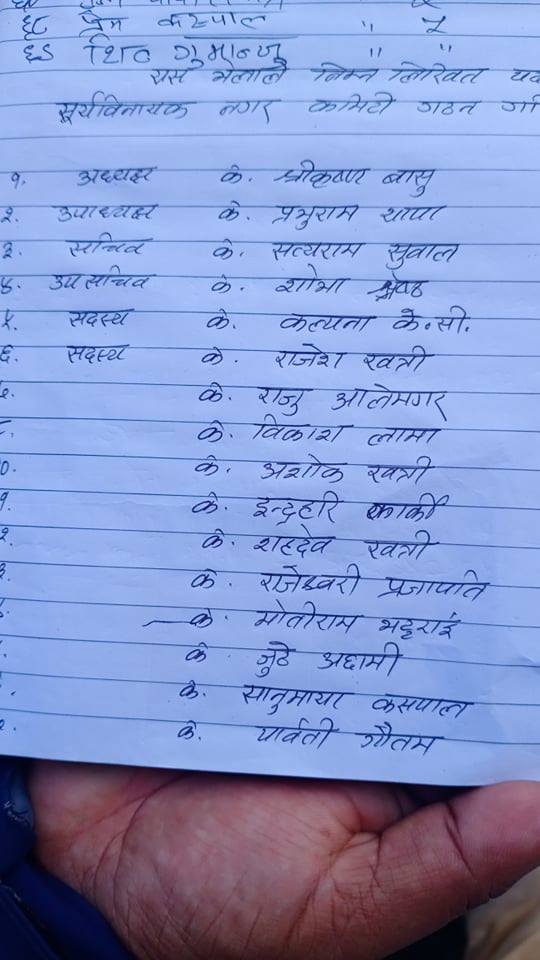 ६८ प्रेम कस्पाल " २
६९ शिव गुमान्जु " "
यस भेलाले निम्न लिखित
सूर्यविनायक नगर कमिटी गठन
१. अध्यक्ष के. श्रीकृष्ण बासु
२. उपाध्यक्ष के. प्रभुराम थापा
३. सचिव के. सत्यराम सुवाल
४. उपसचिव के. शोभा श्रेष्ठ
५. सदस्य के. कल्पना के.सी.
६. सदस्य के. राजेश खत्री
के. राजु आलेमगर
के. विकाश लामा
के. अशोक खत्री
के. इन्द्रहरि कार्की
के. शहदेव खत्री
के. राजेश्वरी प्रजापति
के. मोतीराम भट्टराई
के. जुठे अछामी
के. सानुमाया कसपाल
के. पार्वती गौतम